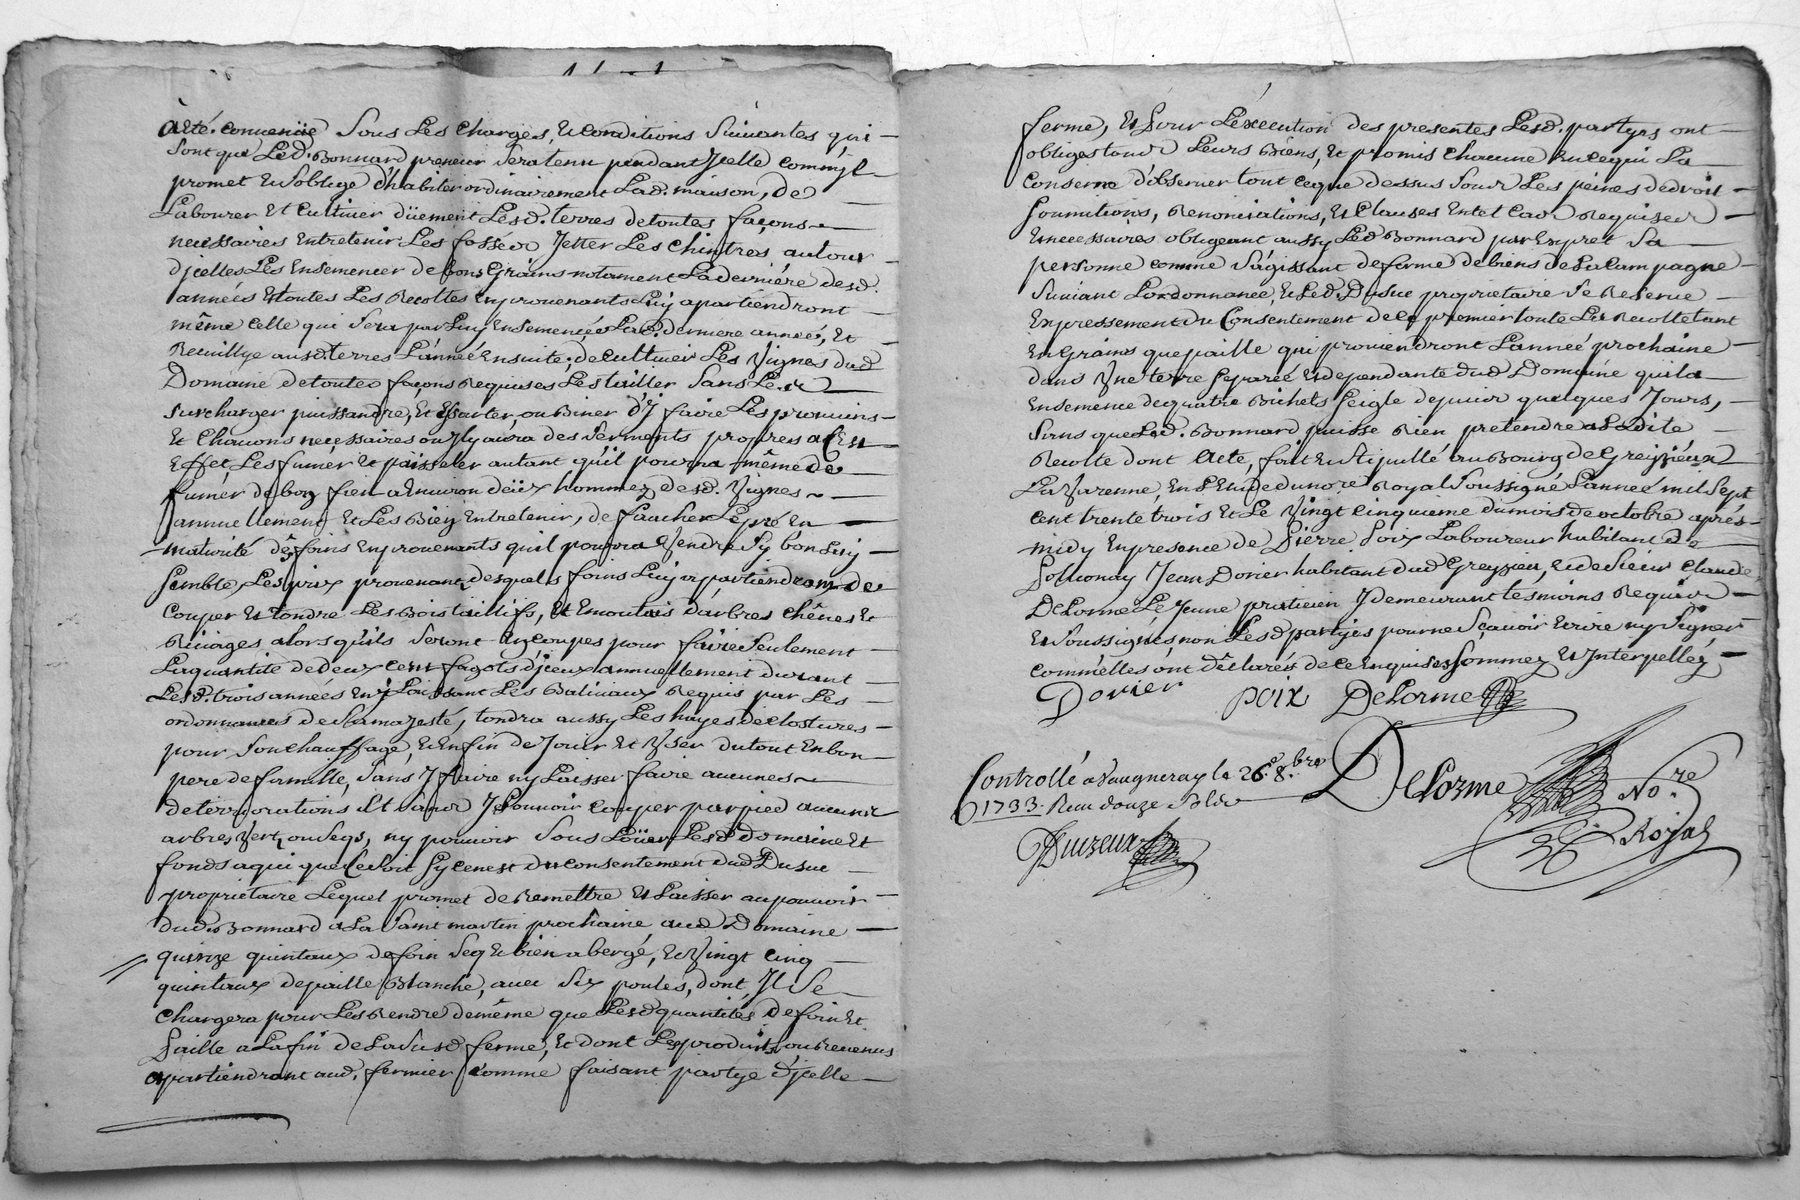 a été convenüe Sous Les charges, et conditions Suivantes qui
Sont que Led. Bonnard preneur Sera tenu pendant Jcelle comm'jl
promet et s'oblige d'habiter ordinairement Lad. maison, de
Labourer et cultiver düement Lesd. terres de toutes façons
necessaires entretenir Les fossés Jetter Les chintres autour
d'jcelles Les ensemencer de bons grains notament La derniére desd.
années et toutes Les Recoltes en provenants Luy apartiendront
même celle qui Sera par Luy ensemencée Lad. derniere année, et
Recuillye ausd. terres L'année ensuite; de cultiver Les Vignes dud.
Domaine de toutes façons Requises Les tailler Sans Les
surcharger puissandre, et Essarter, ou Biner d'y faire Les provins
et chavons necessaires ou Jl y aura des serments propres a cet
effet, Les fumér et paisseler autant qu'il pourra même de
fumér de bon fien a environ deüx hommez desd. Vignes
annuellement et Les Bien entretenir, de faucher Le pré en
maturité des foins en provenants qu'il pourra Vendre Sy bon Luy
Semble, Les prix provenant desquels foins Luy apartiendront de
couper et tondre Les Bois taillifs, et Emoutais d'arbres chênes et
Rivages alors qu'ils Seront en coupes pour faire Seulement
La quantité de deux cent fagots d'jceux annuellement durant
Lesd. trois années en y Laissant Les Balivaux Requis par Les
ordonnances de Sa majesté, tondra aussy Les hayes de clostures
pour Son chauffage, et enfin de Jouir et Vser du tout en bon
pere de famille, Sans y faire ny Laisser faire aucunes
deteriorations et Sans Jl pouvoir couper par pied aucuns
arbres Vert, ou Seqs, ny pouvoir Sous Loüer Lesd. domaine et
fonds a qui que ce Soit Sy ce n'est du consentement dud. Dusuc
proprietaire Lequel promet de Remettre et Laisser au pouvoir
dud. Bonnard a La Saint martin prochaine aud. Domaine
quinze quintaux de foin Seq et bien abergé, et Vingt cinq
quintaux de paille Blanche, avec Six poules, dont Jl Se
chargera pour Les Rendre de même que Lesd. quantités de foin et
paille a La fin de La Susd. ferme, et dont Les produits ou Revenus
apartiendront aud. fermier comme faisant partye d'jcelle
ferme, et pour L'éxécution des presentes Lesd. partyes ont
obligés tous Leurs Biens, et promis chacune en ce qui La
conserne d'observer tout ce que dessus Sous Les peines de droit
Soumitions, Renonciations, et Clauses en tel cas Requises
et necessaires obligeant aussy Led. Bonnard par Expret Sa
personne comme S'agissant de ferme de biens de La campagne
Suivant L'ordonnance, et Led. Dusuc proprietaire Se Reserve
Expressement du Consentement de ce premier toute La Recolte tant
en grains que paille qui proviendront L'année prochaine
dans Vne terre Separée et dependante dud. Domaine qu'il a
ensemencé de quatre Bichets Seigle depuis quelques Jours,
Sans que Led. Bonnard puisse Rien pretendre a Ladite
Recolte dont Acte, fait et stipullé au Bourg de Greyzieux
La Varenne, en L'Etude du no.re Royal Soussigné L'année mil Sept
cent trente trois et Le Vingt cinquieme du mois de octobre aprés
midy en presence de Pierre Poix Laboureur habitant de
Soluonay Jean Dorier habitant dud. Greyzieu, et de Sieur Claude
DeLorme Le Jeune praticien Y demeurant tésmoins Requis
et Soussignés non Lesd. partyes pour ne Sçavoir écrire ny Signer
comm'elles ont déclarés de ce enquises Sommez et Jnterpellez
Dorier poix DeLorme
Controllé a Vaugneray le 26.e 8.bre
1733. Reçu douze Sols
Duizeux
DeLorme No.re
Royal